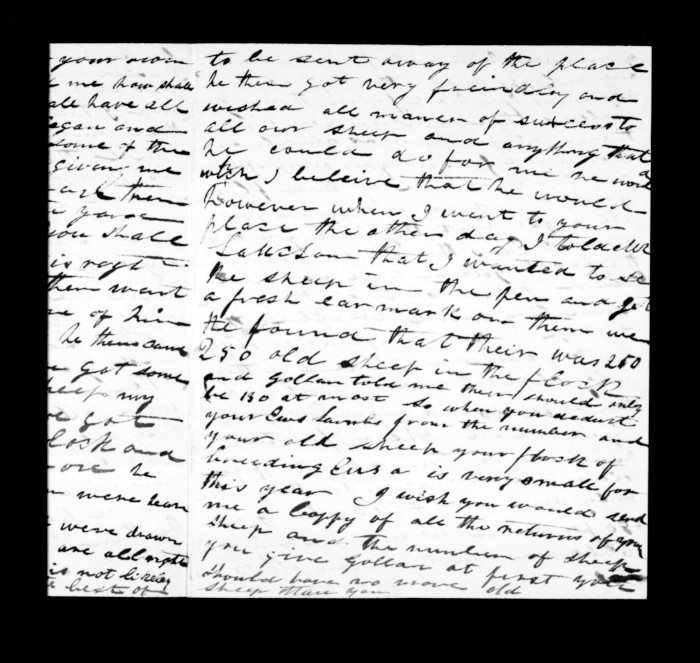 your own
me how shall
all have all
began and
some of the
given me
are then
you shall
is right
them want
one of him
he then came
got some
keep my
got
flock and
he
were here
were drawn
are all right
is not likely
best of
to be sent away of the place
he then got very freindley and
wished all maner of success to
all our sheep and anything that
he could do for me he would
wich I beleive that he would
however when I went to your
place the other day I tolde Mr
that I wanted to se
the sheep in the pen and get
a fresh earmark on them we
He found that their was 250
250 old sheep in the flock
and gollan told me there should only
be 130 at most so when you deduct
your Ews lambs from the number and
your old sheep your flock of
breeding Ews a is very small for
this year I wish you would send
me a coppy of all the returns of your
sheep and the number of sheep
you give gollan at first you
should have no more old
sheep than you